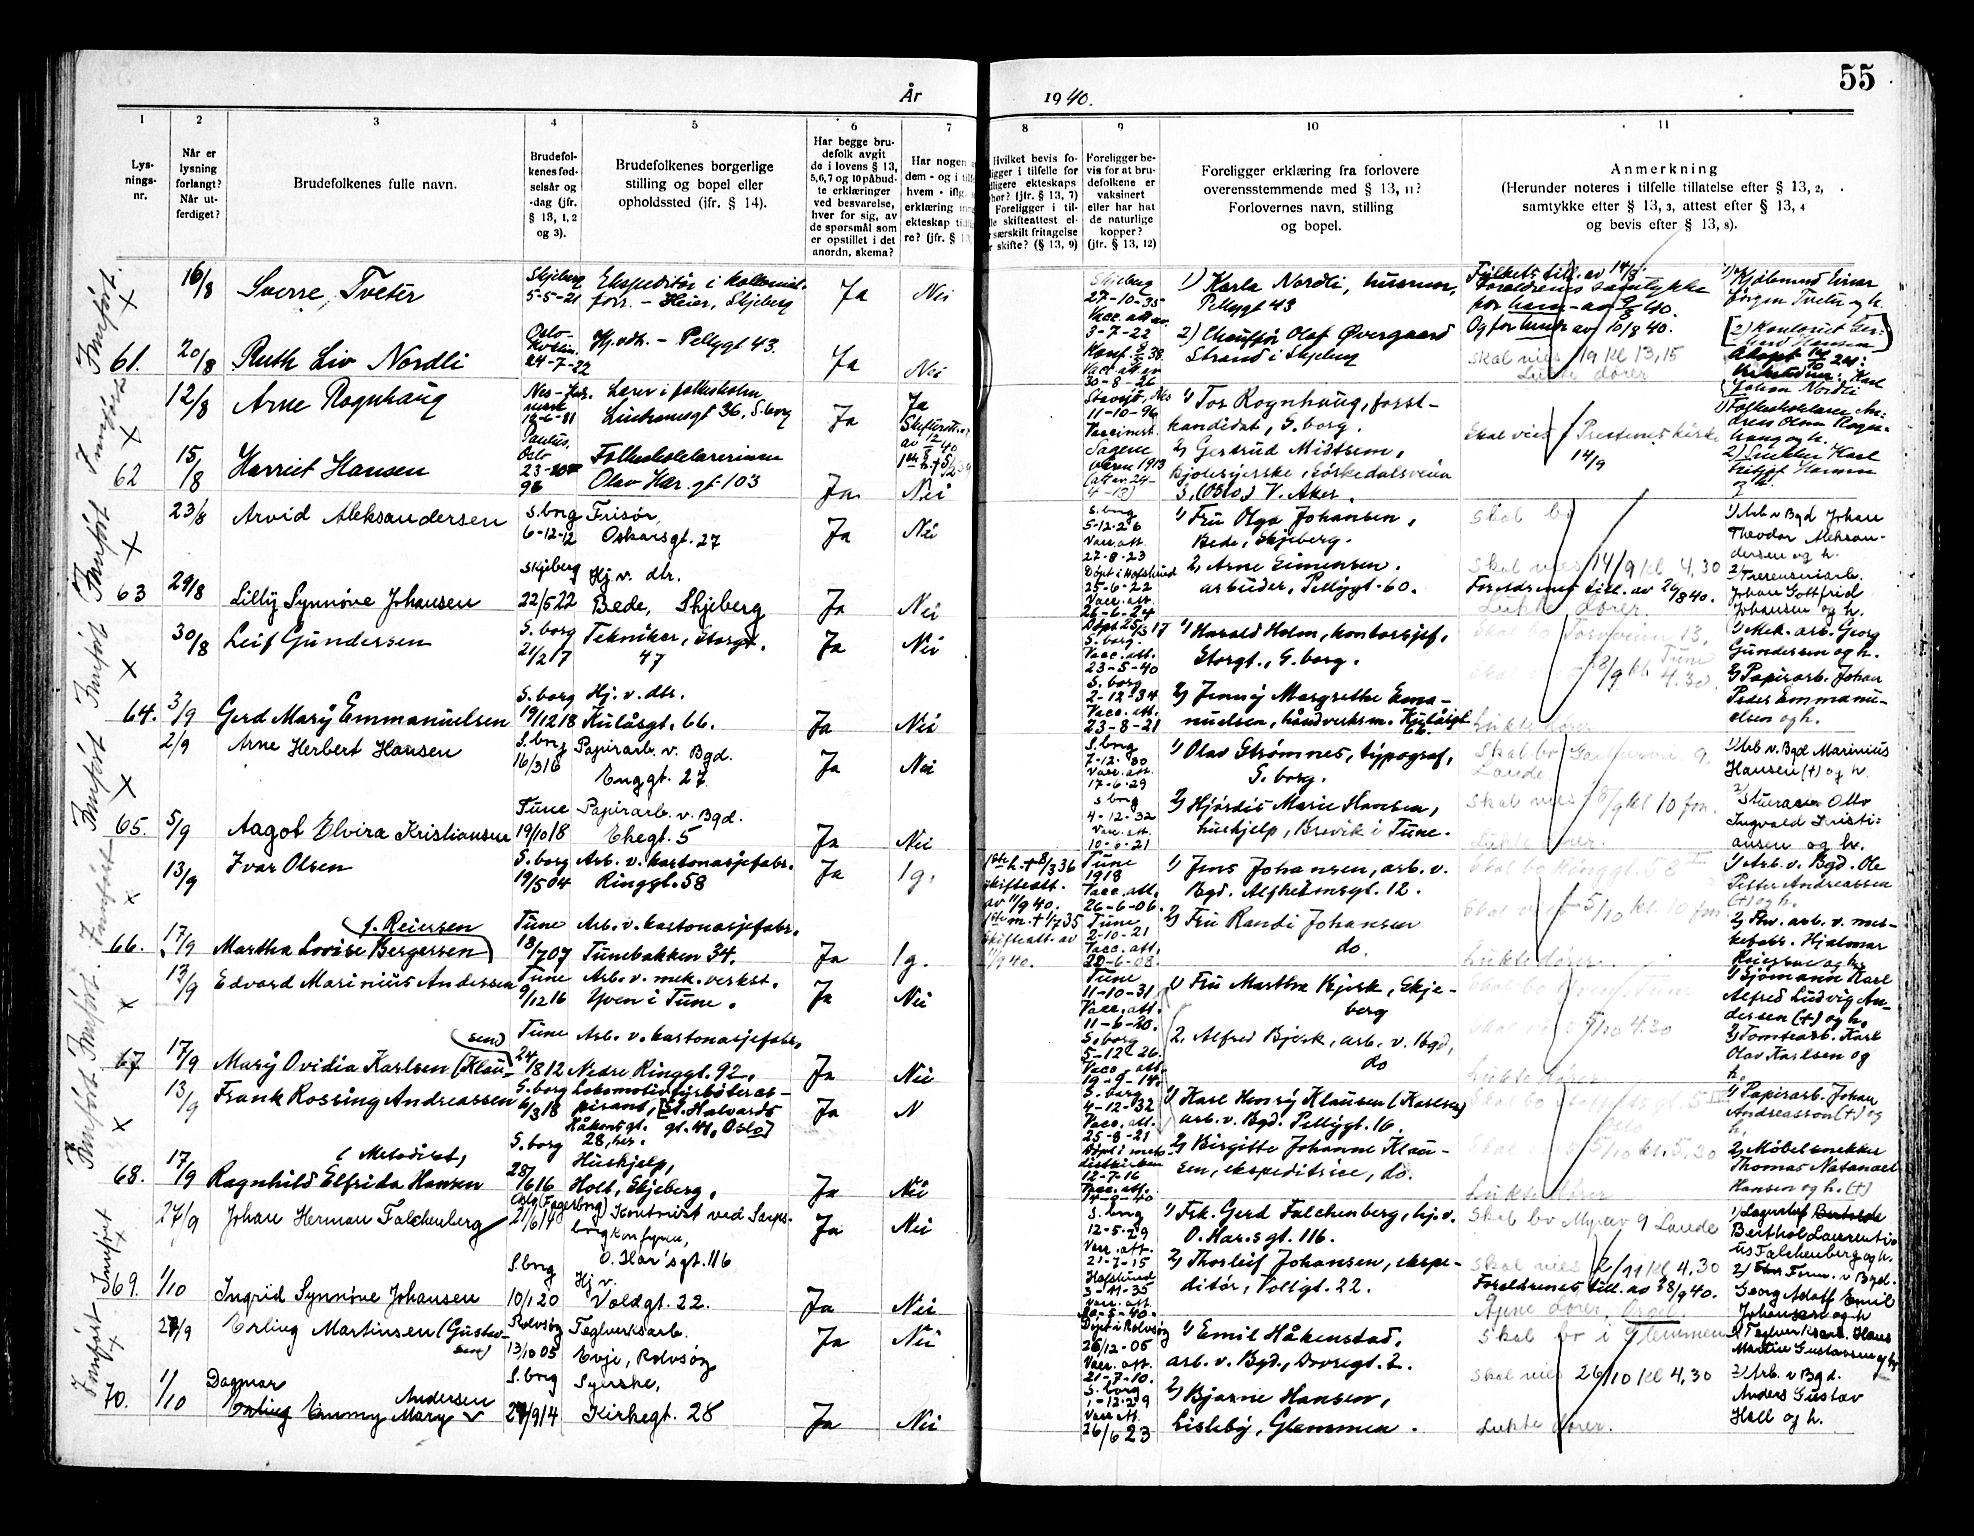 55
År
1940.
1
2
3
4
5
6
7
8
9
10
11
Lys-
nings-
nr.
Når er
lysning
forlangt?
Når ut-
ferdiget?
Brudefolkenes fulle navn.
Brudefol-
kenes fød-
selsår og
-dag (jfr.
§ 13, 1, 2
og 3).
Brudefolkenes borgerlige
stilling og bopel eller
opholdssted (ifr. § 14).
Har begge bru-
defolk avgit
de i lovens § 13,
5,6,7 og 10 påbud-
te erklæringer
ved besvarelse,
hver for sig, av
de spørsmål som
er opstillet i det
anordn. skema?
Har nogen a
dem - og i tilf
hvem - ifl.
erklæring inn
ekteskap tidl
re? (jfr. § 13,
Hvilket bevis fo-
ligger i tilfelle for
dligere ekteskaps
pher? (jfr. § 13, 7)
Foreligger i til-
le skifteattest el-
r særskilt fritagelse
r skifte? (§ 13, 9)
Foreligger be-
vis for at bru-
defolkene er
vaksinert
eller har hat
de naturlige
kopper?
(jfr. § 13, 12)
Foreligger erklæring fra forlovere
overensstemmende med § 13, 11?
Forlovernes navn, stilling
og bopel.
Anmerkning
(Herunder noteres i tilfelle tillatelse efter § 13, 2,
samtykke efter § 13, 3, attest efter § 13, 4
og bevis efter § 13, 8).
61.
16/8
Sverre Tveter
Skjeberg
5-5-21
Ekspeditør i kolonial-
forr. - Heier, Skjeberg
Ja
Nei
Skjeberg
27-10-35
Vacc. att av
3-7-22
1) Karla Nordli, husmor,
Pellygt 43
Fylkets till. av 14/8.
Foreldrenes samtykke
for ham - av 9/8 40.
Og for henne av 10/8 40.
1) Hjølmund Einar
Jørgen Tveter og h.
20/8
Ruth Liv Nordli
Oslo
24-7-22
Hj.vdt. - Pellygt 43.
Ja
Nei
Konf.
Vacc att av
30-8-26
2) Chauffør Olaf Øvergaard
Strand i Skjeberg
skal vies 19 kl 13,15
Lukte dører
Johan Nordli
62
12/8
Arne Rognhaug
Nes - Hed.
12-6-81
Lærer i folkeskolen
36, S.borg
Ja
Ja
11-10-96
Vaccinert
1) Tor Rognhaug, forst-
kandidat, S.borg.
Skal vies i Prestenes kirke
14/9
1) Folkeskolelærer An-
ders Olsen Rogn-
haug og h.
15/8
Harriet Hansen
Paulus,
Oslo
96
Folkeskolelærerinne
Olav Har. gt 103
Ja
Nei
Sagene
2) Gertrud Midtsem,
Sørkedalsveien
3, (Oslo) V. Aker.
Hansen
og h.
63
23/8
Arvid Aleksandersen
S.borg
6-12-12
Frisør,
Oskarsgt. 27
Ja
Nei
S.borg
5-12-26
Vacc. att.
22-8-23
1) Fru Olga Johansen,
Bede, Skjeberg.
skal bo
1) Arb v Bgd Johan
Theodor Aleksan-
dersen og h.
29/8
Lilly Synnøve Johansen
Skjeberg
22/5 22
Hj. v. dtr.
Bede, Skjeberg
Ja
Nei
Døpt i Hafslund
25-6-22
Vacc. att.
26-6-24
2) Arne Simensen.
arbeider, Pellygt. 60.
skal vies 14/9 kl 4,30
Foreldrenes till. av 26/8 40.
Lukte dører.
Johan Gottfrid
Johansen og h.
64.
30/8
Leif Gundersen
S.borg
21/2 17
Tekniker, Storgt.
47
Ja
Nei
Døpt 25/3 17
S.borg.
Vacc. att.
23-5-40
1) Harald Holm, kontorsjef,
Storgt., S.borg.
Skal bo Torsveien 13,
Tune
1) Mek. arb. Georg
Gundersen og h.
3/9
Gerd Mary Emmanuelsen
S.borg
19/12 18
Hj. v. dtr.
Kulåsgt. 66.
Ja
Nei
S.borg
2-12-34
Vacc. att.
23-8-21
2) Jenny Margrethe Ema-
nuelsen, håndverksm. Kulåsgt
66.
skal vies 28/9 kl. 4.30
Lukte dører
2) Papirarb. Johan
Peder Emmanu-
elsen og h.
65.
2/9
Arne Herbert Hansen
S.borg
16/3 16
Papirarb. v. Bgd.
Enggt. 27
Ja
Nei
S.borg
7-12-30
Vacc. att.
17-6-29
1) Olav Strømnes, typograf,
S.borg.
Skal bo 9,
Lande
1) Arb v. Bgd Marinius
Hansen (+) og h.
5/9
Aagot Elvira Kristiansen
Tune
19/10 18
Papirarb. v. Bgd.
Ehegt. 5
Ja
Nei
S.borg
4-12-32
Vacc. att.
10-6-21
2) Hjørdis Marie Hansen,
hushjelp, Brevik i Tune.
skal vies 28/9 kl 10 fm.
Lukte dører
2) Stuearb Otto
Ingvald Kristi-
ansen og h.
66.
13/9
Ivar Olsen
S.borg
19/5 04
Arb. v. kartonasjefabr.
Ringgt. 58
Ja
1 g.
1ste h. + 8/3 36
skifteatt.
av 11/9 40.
Tune
1918
Vacc. att.
26-6-06.
1) Jens Johansen, arb. v.
Bgd. Alfheimsgt. 12.
Skal bo Ringgt. 58 II
1) Arb. v. Bgd. Ole
Petter Andreassen
(+) og h.
17/9
f. Reiersen
Martha Lovise Bergersen
Tune
18/7 07
Arb. v. kartonasjefabr.
Tunebakken 34.
Ja
1 g.
1ste m. + 1/7 35
skifteatt. av
11/9 40.
Tune
2-10-21
Vacc. att.
20-6-08.
2) Fru Randi Johansen
do.
Skal vies 5/10 kl. 10 fm.
Lukte dører.
2) Fhv. arb. v. mek-
Hjalmar
Reiersen og h.
67.
13/9
Edvard Marinius Andersen
Tune
9/12 16
Arb. v. mek. verkst.
Yven i Tune.
Ja
Nei
Tune
11-10-31
Vacc. att.
11-6-20.
1) Fru Martha Bjerk, Skje-
berg
Skal bo Yven i Tune
1) Sjømann Karl
Alfred Ludvig An-
dersen (+) og h.
17/9
Mary Ovidia Karlsen (Klau-
sen)
Tune
24/8 12
Arb. v. kartonasjefabr.
Nedre Ringgt. 92.
Ja
Nei
S.borg
5-12-26.
Vacc. att.
19-9-14.
2. Alfred Bjerk, arb. v. Bgd,
do
Skal vies 5/10 4.30
Lukte dører
2) Tomtearb. Karl
Olav Karlsen og
h.
68.
13/9
Frank Rossing Andreassen
S.borg
6/3 18
Lokomotivfyrbøteras-
pirant, [St. Halvards
gt. 41, Oslo]
Håkonsgt.
28, her.
Ja
N
S.borg
4-12-32
Vacc. att.
25-8-21
1) Karl Henry Klausen (Karlsen)
arb. v. Bgd. Pellygt. 16.
Oslo
1) Papirarb. Johan
Andreassen (+) og
h.
17/9
(Metodist)
Ragnhild Elfrida Hansen
S.borg
28/6 16
Hushjelp,
Holt, Skjeberg.
Ja
Nei
Døpt i met-
distkirken
12-7-16
Vacc. att.
2) Birgitte Johanne Klau-
sen, ekspeditrice, do.
Skal vies 5/10 kl. 5,30
Lukte dører
2) Møbelsnekker
Thomas Natanael
Hansen og h. (+)
69.
27/9
Johan Herman Falchenberg
Oslo (Fagerborg)
21/6 14
Kontorist ved Sarps-
borg kom fyren,
O. Har's gt. 116
Ja
Nei
S.borg
12-5-29
Vacc. att.
21-7-15
1) Frk. Gerd Falchenberg, hj.v.
O. Har.s gt. 116.
Skal bo Myrav 9 Lande
Berthold Laurenti-
us Falchenberg og h.
1/10
Ingrid Synnøve Johansen
S.borg
10/1 20
Hj v.
Voldgt. 22.
Ja
Nei
Hafslund
3-11-35
Vacc. att.
20-5-40.
2) Thorleif Johansen, ekspe-
ditør, Vollgt. 22.
skal vies 2/11 kl 4,30
Foreldrenes till. av 28/9 40.
Åpne dører. Orgel
2) Form. v Bgd.
Georg Adolf Emil
Johansen og h
70.
27/9
Erling Martinsen (Gustav-
sen)
Rolvsøy
13/10 05
Teglverksarb.
Evje, Rolvsøy
Ja
Nei
Døpt i Rolvsøy
26/12-05
Vacc. att.
21-7-10.
1) Emil Håkenstad,
arb. v. Bgd., Dovregt. 2.
Skal bo i Glemmen
1) Teglverksarb. Hans
Martin Gustavsen og h
1/10
Dagmar
Erling Emmy Mary Andersen
S.borg
27/9 14
Syerske,
Kirkegt. 28
Ja
Nei
S.borg
1-12-29
Vacc att.
26/6 23
2) Bjarne Hansen,
Lisleby, Glemmen.
skal vies 26/10 kl 4,30
Lukte dører.
2) Arb. v Bgd.
Anders Gustav
Hall og h.